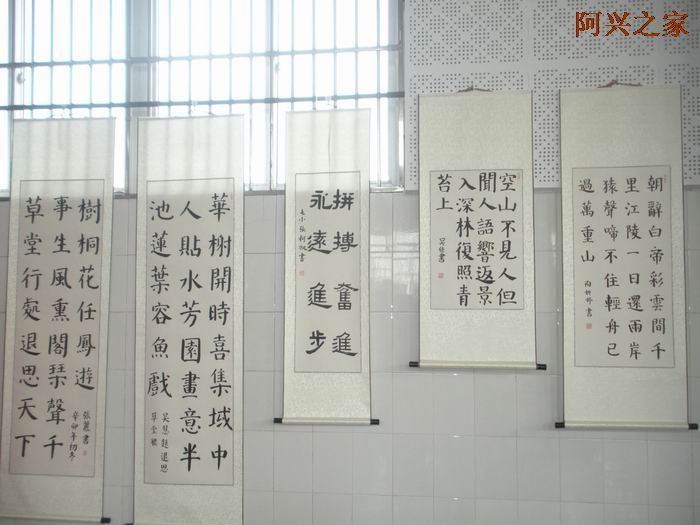 阿兴之家
朝辭白帝彩雲間千
里江陵一日還兩岸
猿聲啼不住輕舟已
過萬重山
空山不見人但
聞人語響返景
入深林復照青
苔上
拼搏奮進
永遠進步
華榭開時喜集域中
人貼水芳園畫意半
池蓮葉容魚戲
樹桐花任鳳遊
事生風熏閣琹聲千
草堂行處退思天下
張麓書
辛卯年初冬